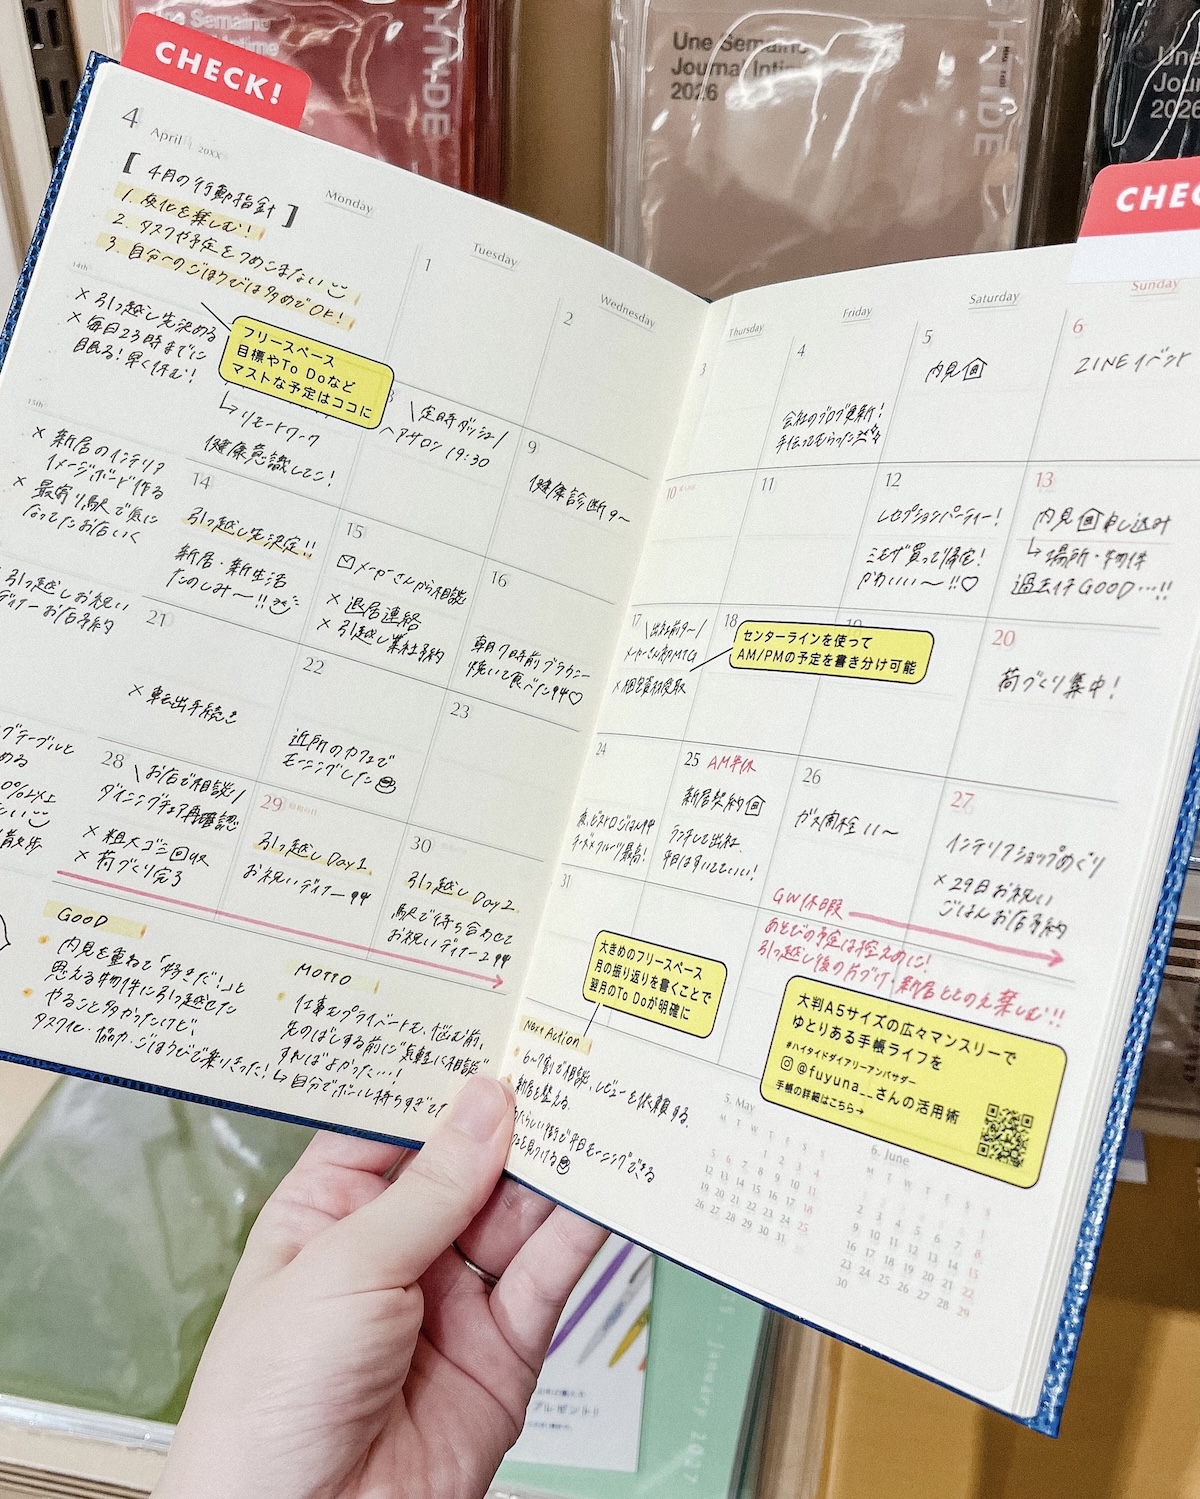 CHECK!
Une Semaine
Journal Intime
2026
HIGHTIDE
4 April 20XX
Monday
Tuesday
Wednesday
【4月の行動指針】
1. 変化を楽しむ!
2. タスクや予定をつめこまない
3. 自分へのごほうびは多めでOK!
× 引っ越し先決める
× 毎日23時までに
眠る!早く休む!
フリースペース
目標やTo Doなど
マストな予定はココに
× 新居のインテリア
イメージボード作る
× 最寄り駅で気に
なってたお店いく
引っ越しお祝い
ディナーお店予約
1
2
↳リモートワーク
健康意識してこ!
8
\定時ダッシュ/
ヘアサロン 19:30
9
健康診断 9〜
14
引っ越し先決定!!
新居・新生活
たのしみ〜!!
15
メーカーさんから相談
× 退居連絡
× 引越し業社予約
16
朝7時前ブラウニー
焼いて食べた♡
21
× 転出手続き
22
近所のカフェで
モーニングした
23
28
\お店で相談/
ダイニングチェア再確認
× 粗大ゴミ回収
× 荷づくり完了
29
引っ越し Day1.
お祝いディナー
30
引っ越し Day2.
駅で待ち合わせて
お祝いディナー2
GOOD
内見を重ねて「好きだ!」と
思える物件に引っ越せた
やること多かったけど、
タスク化・協力・ごほうびで乗りきった!
MOTTO
仕事もプライベートも、悩む前、
先のばしする前に"気軽に相談"
すればよかった…!
↳自分でボール持ちすぎて
CHECK!
Thursday
Friday
Saturday
Sunday
3
4
会社のブログ更新!
手伝ってもらった
5
内見
6
ZINEイベント
10
11
12
レセプションパーティー!
ミモザ買って帰宅!
かわいい〜!!♡
13
内見申し込み
↳場所・物件
過去イチGOOD…!!
17
\出社前9〜/
メーカーさん初MTG
× 梱包資材受取
18
19
センターラインを使って
AM/PMの予定を書き分け可能
20
荷づくり集中!
24
25 AM半休
新居契約
ランチして出社。
平日はすいてていい!
26
ガス開栓 11〜
27
インテリアショップめぐり
× 29日お祝い
ごはんお店予約
31
GW休暇
あそびの予定は控えめに!
引っ越し後の片づけ・新居ととのえ楽しむ!!
大きめのフリースペース
月の振り返りを書くことで
翌月のTo Doが明確に
大判A5サイズの広々マンスリーで
ゆとりある手帳ライフを
#ハイタイドダイアリーアンバサダー
@fuyuna__さんの活用術
手帳の詳細はこちら→
Next Action
新居を整える。
5. May
M T W T F S S
1 2 3 4
5 6 7 8 9 10 11
12 13 14 15 16 17 18
19 20 21 22 23 24 25
26 27 28 29 30 31
6. June
M T W T F S S
1
2 3 4 5 6 7 8
9 10 11 12 13 14 15
16 17 18 19 20 21 22
23 24 25 26 27 28 29
30
プレゼント!!
January 2027